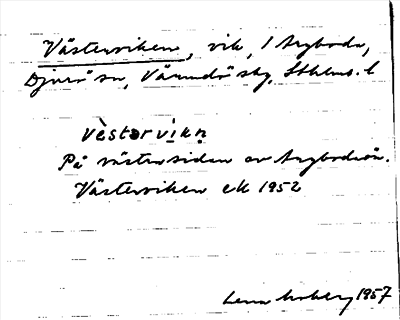 Västerviken, vik, I Aspboda,
Djurö sn, Värmdö skg, Sthlms. l
vèstərvikn̥
På västersidan av Aspbodaön.
Västerviken ek 1952
Lena Moberg 1957